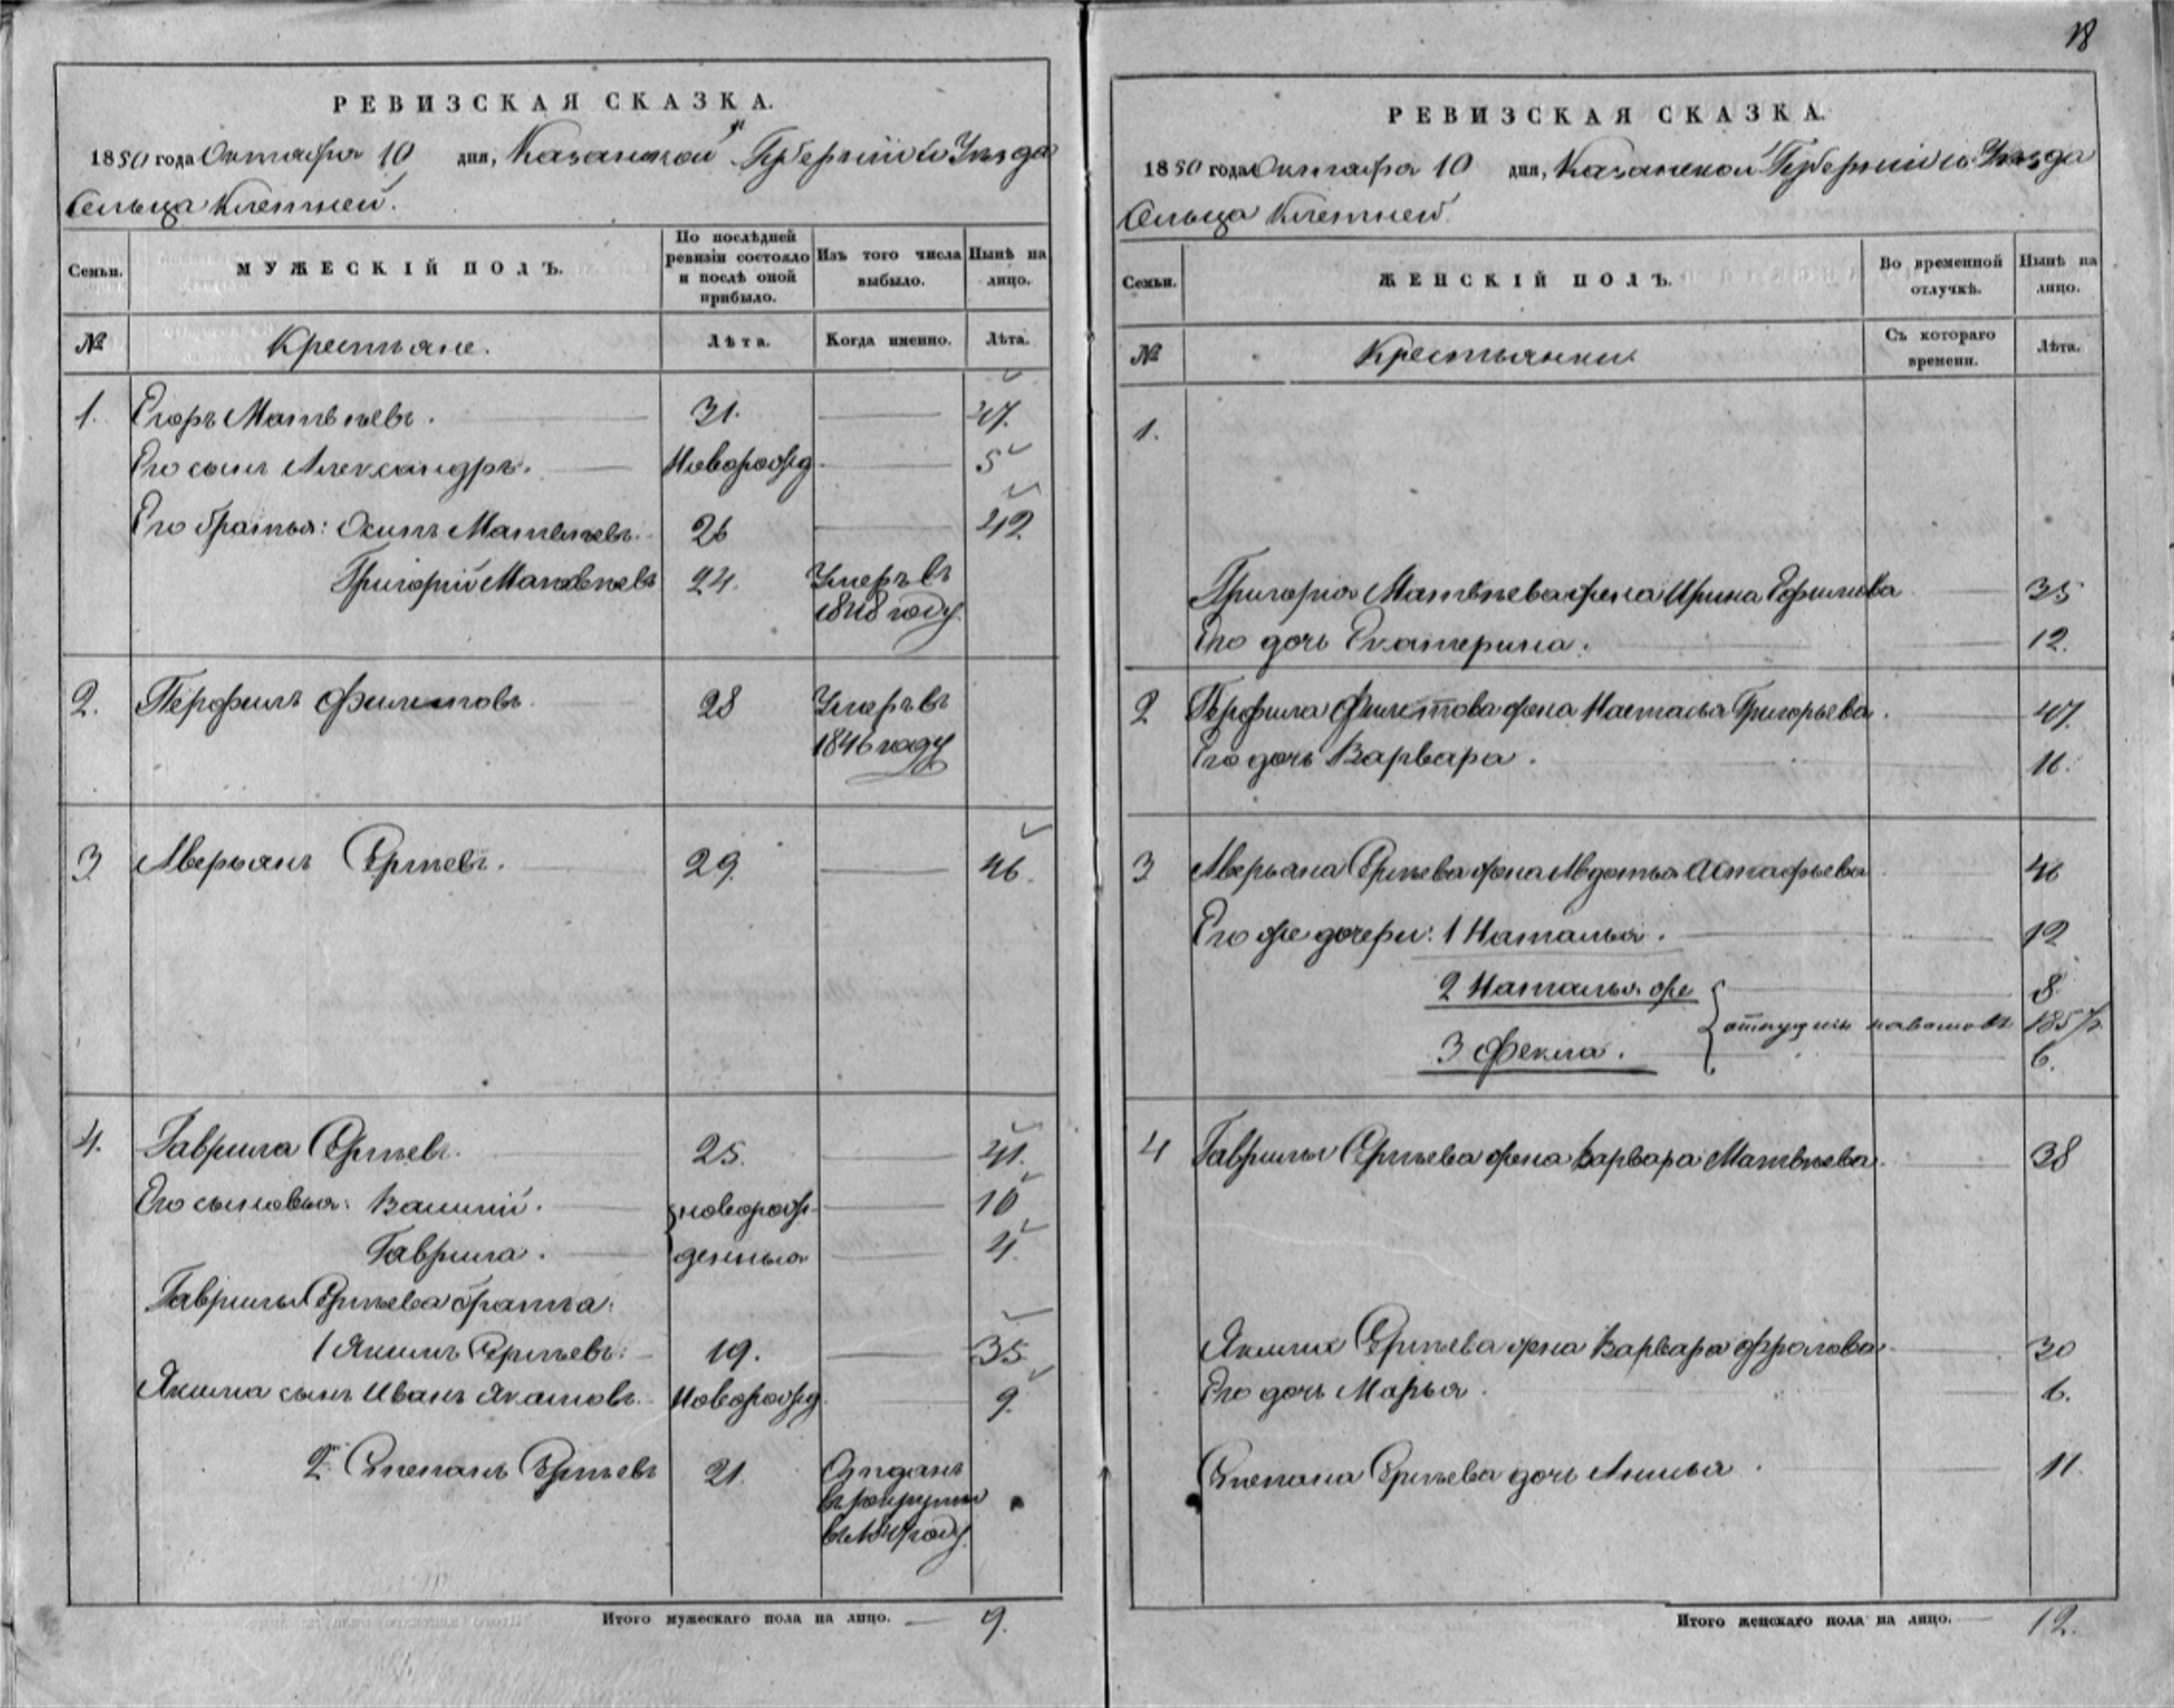 18
РЕВИЗСКАЯ СКАЗКА.
1850 года Октября 10 дня, Казанской Губерніи и Уѣзда
Сельца Клетней.
Семьи. МУЖЕСКІЙ ПОЛЪ. По послѣдней ревизіи состояло и послѣ оной прибыло. Изъ того числа выбыло. Нынѣ на лицо.
№ Крестьяне. Лѣта. Когда именно. Лѣта.
1. Егоръ Матвѣевъ. 31. 47.
Его сынъ Александръ. Новорожд 5
Его братья: Осипъ Матвѣевъ. 26 42
Григорій Матвѣевъ 24. Умеръ въ
1848 году.
2. Перфилъ Филатовъ. 28 Умеръ въ
1846 году
3 Аверьянъ Ергѣевъ. 29. 46.
4. Гаврила Ергѣевъ. 25. 41.
Его сыновья: Василий. новорож- 10
Гаврила. денныя 4.
Гаврилы Ергѣева братья:
1 Якимъ Ергѣевъ: 19. 35
Якима сынъ Иванъ Якимовъ. Новорожд 9.
2й Степанъ Ергѣевъ 21. Отданъ
въ рекруты
году.
Итого мужескаго пола на лицо. 9.
РЕВИЗСКАЯ СКАЗКА.
1850 года Октября 10 дня, Казанской Губерніи и Уѣзда
Сельца Клетней.
Семьи. ЖЕНСКІЙ ПОЛЪ. Во временной отлучкѣ. Нынѣ на лицо.
№ Крестьянки. Съ котораго времени. Лѣта.
1.
Григорія Матвѣева жена Ирина Ефимова 35
Его дочь Екатерина. 12.
2 Перфила Филатова жена Настасья Григорьева. 47.
Его дочь Варвара. 11.
3 Аверьяна Ергѣева жена Авдотья Астафьева 46
Его же дочери: 1 Наталья. 12
2 Наталья же 8
отпущены 1857
3 Фекла. 6.
4 Гаврилы Ергѣева жена Варвара Матвѣева. 38
Якима Ергѣева жена Варвара Фролова 30
Его дочь Марья. 6.
Степана Ергѣева дочь Анисья. 11.
Итого женскаго пола на лицо. 12.